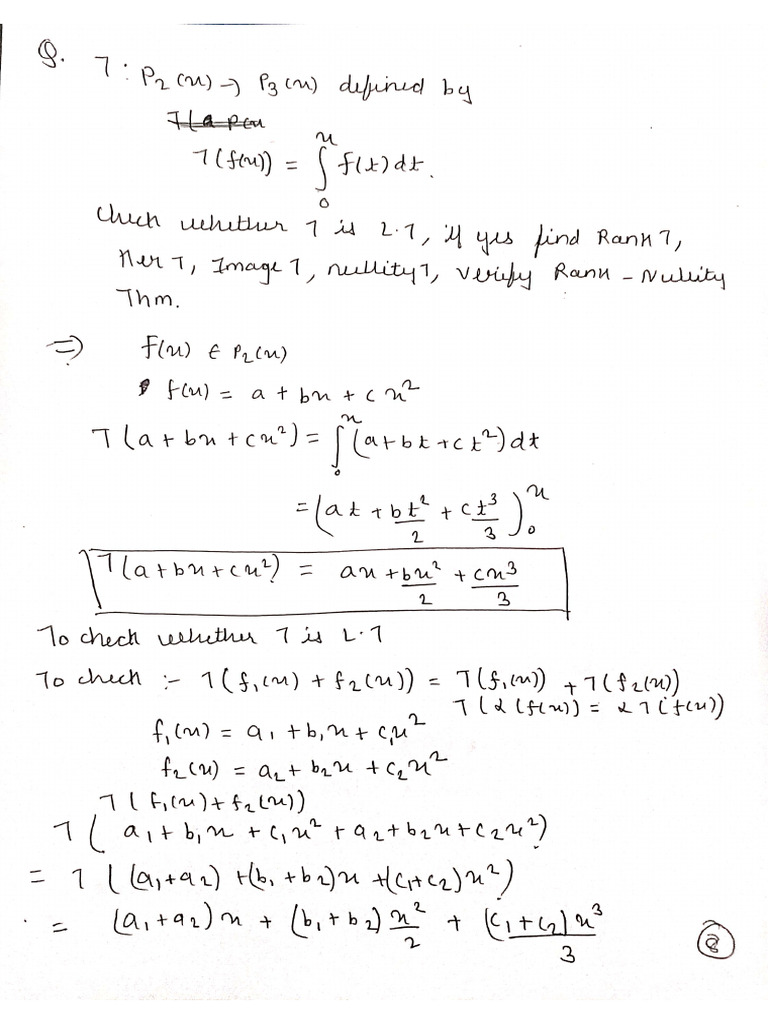 Q. T : P₂(x) → P₃(x) defined by
T(f(x)) = ∫₀ˣ f(t) dt.
Check whether T is L.T, if yes find Rank T,
Ker T, Image T, nullity T, verify Rank - Nullity
Thm.
⇒ f(x) ∈ P₂(x)
f(x) = a + bx + cx²
T(a + bx + cx²) = ∫₀ˣ (a + bt + ct²) dt
= (at + bt²/2 + ct³/3)₀ˣ
T(a + bx + cx²) = ax + bx²/2 + cx³/3
To check whether T is L.T
To check :- T(f₁(x) + f₂(x)) = T(f₁(x)) + T(f₂(x))
T(α(f(x)) = αT(f(x))
f₁(x) = a₁ + b₁x + c₁x²
f₂(x) = a₂ + b₂x + c₂x²
T(f₁(x) + f₂(x))
T(a₁ + b₁x + c₁x² + a₂ + b₂x + c₂x²)
= T((a₁+a₂) + (b₁+b₂)x + (c₁+c₂)x²)
= (a₁+a₂)x + (b₁+b₂)x²/2 + (c₁+c₂)x³/3
8